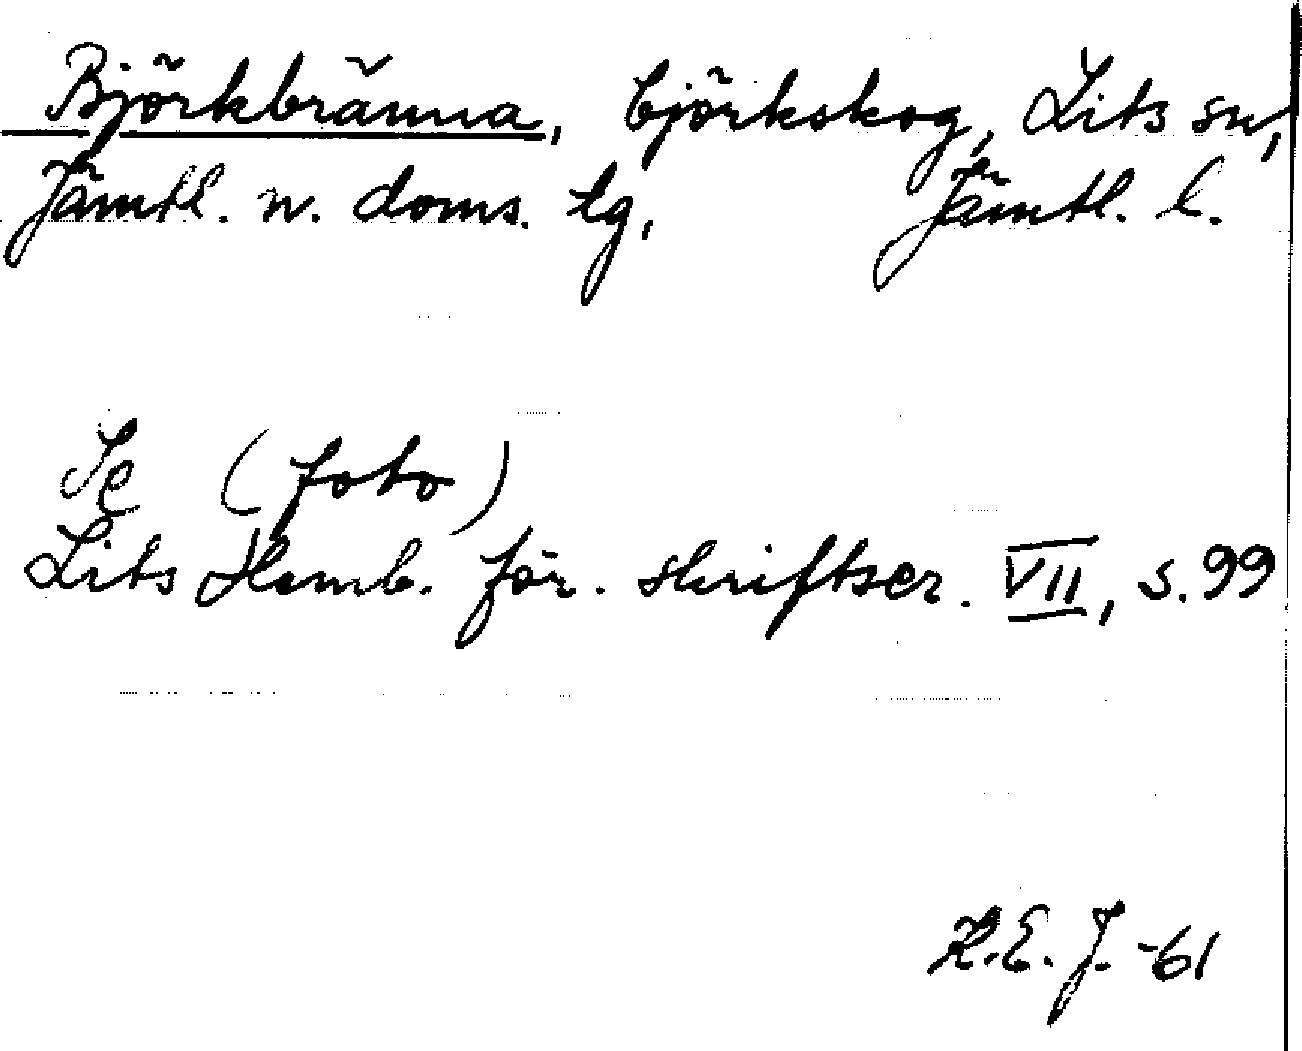 Björkbränna, björkskog, Lits sn,
Jämtl. n. doms. tg, Jämtl. l.
Se (foto)
Lits Hemb. för. skriftser. VII, s. 99
K.E. J. -61